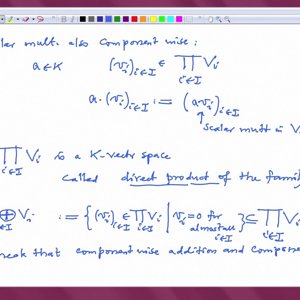 lar mult. also componentwise:
a ∈ K (v_i)_{i∈I} ∈ ∏_{i∈I} V_i
a·(v_i)_{i∈I} := (a v_i)_{i∈I}
scalar mult in V
∏_{i∈I} V_i is a K-vector space
called direct product of the famil
⊕_{i∈I} V_i := {(v_i)_{i∈I} ∈ ∏_{i∈I} V_i | v_i = 0 for almost all i∈I} ⊆ ∏_{i∈I} V
that componentwise addition and compone